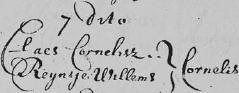 7 dito
Claes Cornelisz..
Reyntje Willems } Cornelis